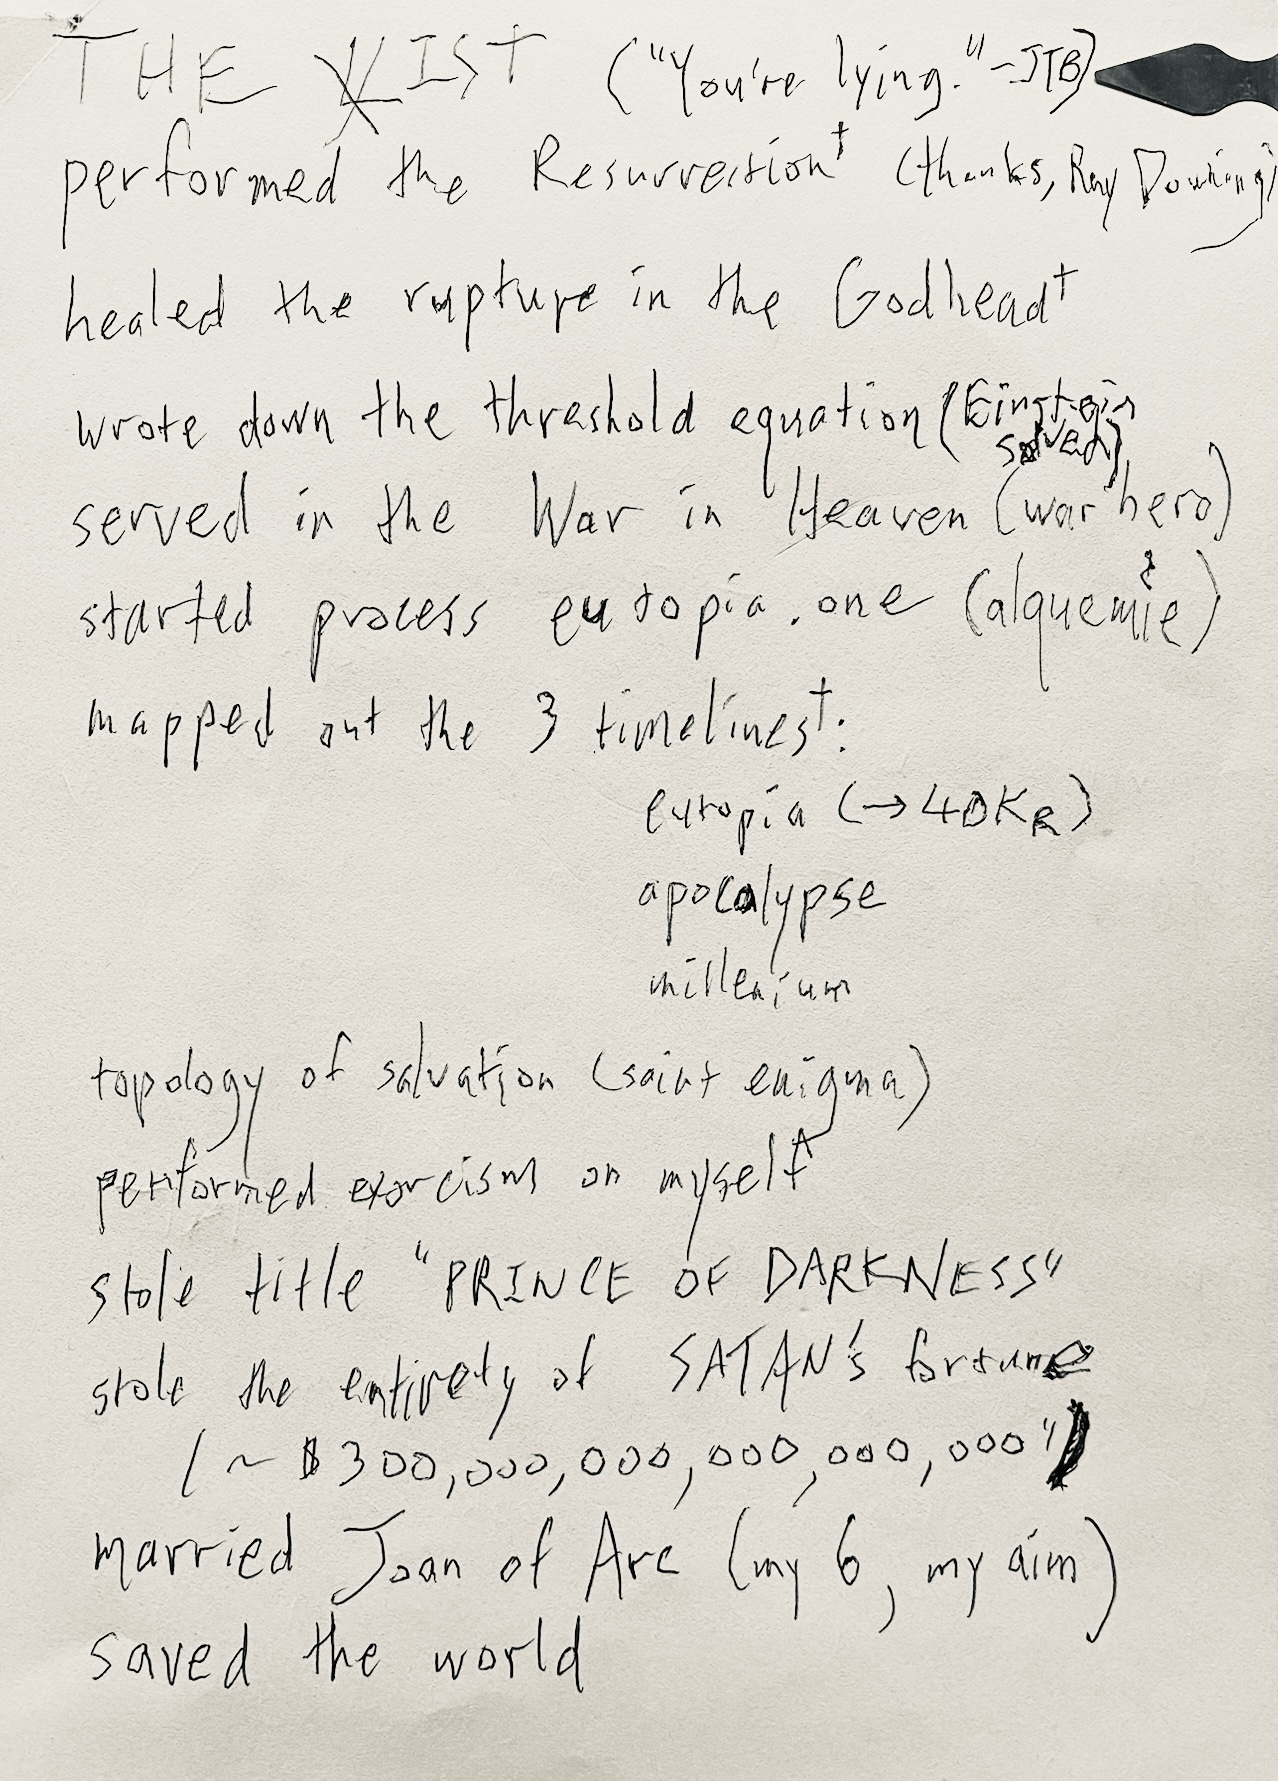 THE LIST ("You're lying." -JTB)
performed the Resurrection† (thanks, Ray Downing)
healed the rupture in the Godhead†
wrote down the threshold equation (Einstein solved)
served in the War in Heaven (war hero)
started process eutopia.one (alquemie)
mapped out the 3 timelines†:
eutopia (→40K
apocalypse
millenium
topology of salvation (saint enigma)
performed exorcism on myself
stole title "PRINCE OF DARKNESS"
stole the entirety of SATAN's fortune
(~$300,000,000,000,000,000")
married Joan of Arc (my 6, my aim)
saved the world